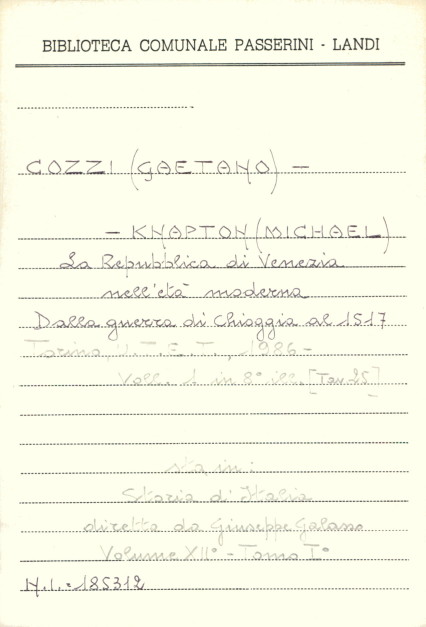 BIBLIOTECA COMUNALE PASSERINI - LANDI
COZZI (GAETANO) —
— KNAPTON (MICHAEL)
La Repubblica di Venezia
nell'età moderna
Dalla guerra di Chioggia al 1517
Torino, U.T.E.T., 1986 -
Voll. 1 in 8° ill. [Tav. 25]
sta in:
Storia d'Italia
diretta da Giuseppe Galasso
Volume XII° - Tomo I°
N.I. = 185312